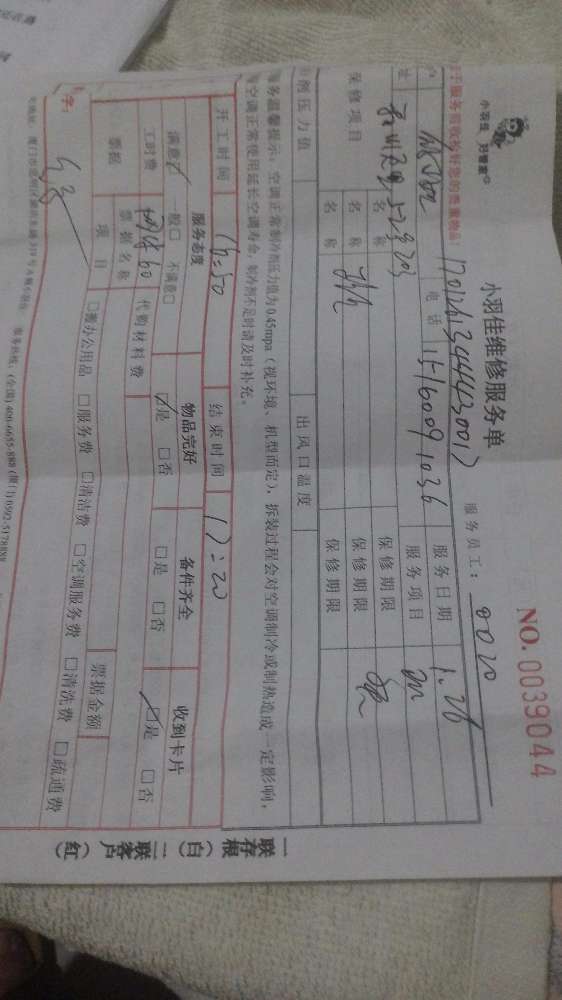 小羽佳 好管家
小羽佳维修服务单
NO.0039044
服务员工: 8020
于服务前收拾好您的贵重物品!
17012613444430017
电话 15160091036 服务日期 1.26
服务项目
保修项目 名称 保修期限
名称 保修期限
名称 保修期限
剂压力值 出风口温度
务温馨提示:空调正常制冷剂压力值为0.45mpa(视环境、机型而定),拆装过程会对空调制冷或制热造成一定影响,
空调正常使用延长空调寿命,制冷剂不足时请及时补充。
开工时间 16:50 结束时间 17:20
服务态度 物品完好 备件齐全 收到卡片
满意☑ 一般□ 不满意□ ☑是 □否 □是 □否 ☑是 □否
工时费 60 代购材料费
票据 票据名称 票据金额
项目 □搬办公用品 □服务费 □清洁费 □空调服务费 □清洗费 □疏通费
字:
服务热线:(全国)400-6655-888 (厦门)0592-5178888
一联存根(白) 二联客户(红)